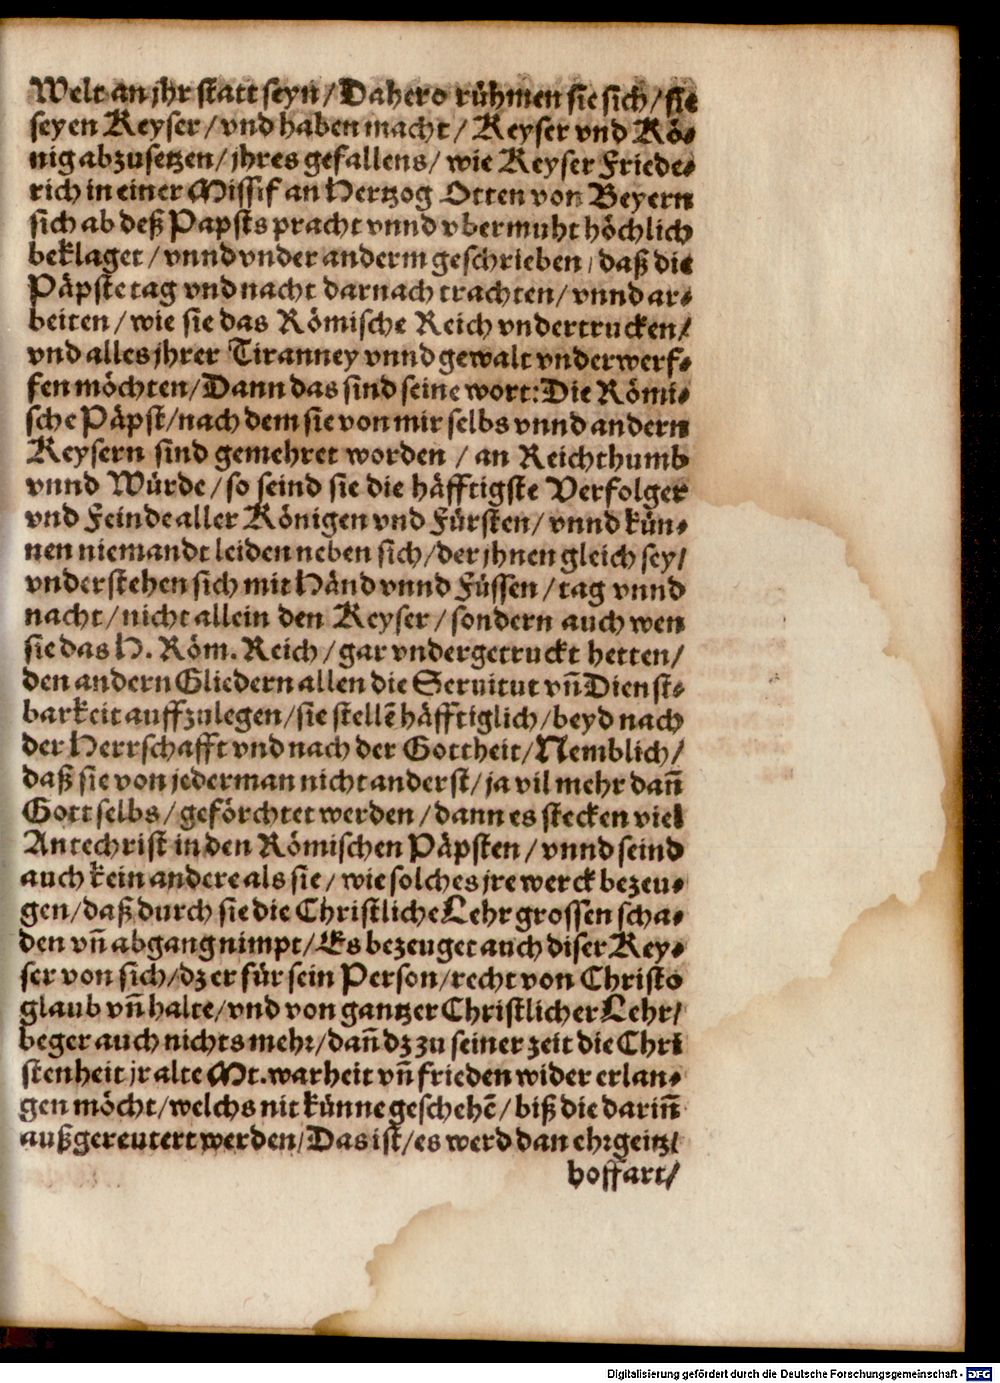 Welt an jhr statt seyn/Dahero rühmen sie sich/sie
seyen Keyser/vnd haben macht/ Keyser vnd Kö-
nig abzusetzen/jhres gefallens/ wie Keyser Friede-
rich in einer Missif an Hertzog Otten von Beyern
sich ab deß Papsts pracht vnnd vbermuht höchlich
beklaget/vnnd vnder anderm geschrieben, daß die
Päpste tag vnd nacht darnach trachten/ vnnd ar-
beiten/wie sie das Römische Reich vndertrucken/
vnd alles jhrer Tiranney vnnd gewalt vnderwerf-
fen möchten/Dann das sind seine wort:Die Römi-
sche Päpst/nach dem sie von mir selbs vnnd andern
Keysern sind gemehret worden / an Reichthumb
vnnd Würde/so seind sie die häfftigste Verfolger
vnd Feinde aller Königen vnd Fürsten/ vnnd kün-
nen niemandt leiden neben sich/der jhnen gleich sey/
vnderstehen sich mit Händ vnnd Füssen/tag vnnd
nacht/nicht allein den Keyser/sondern auch wen
sie das H. Röm. Reich/gar vndergetruckt hetten/
den andern Gliedern allen die Seruitut vñ Dienst-
barkeit auffzulegen/sie stellẽ häfftiglich/beyd nach
der Herrschafft vnd nach der Gottheit/Nemblich/
daß sie von jederman nicht anderst/ja vil mehr dañ
Gott selbs/geförchtet werden/dann es stecken viel
Antechrist in den Römischen Päpsten/vnnd seind
auch kein andere als sie/wie solches jre werck bezeu-
gen/daß durch sie die Christliche Lehr grossen scha-
den vñ abgang nimpt/Es bezeuget auch diser Key-
ser von sich/dz er für sein Person/recht von Christo
glaub vñ halte/vnd von gantzer Christlicher Lehr/
beger auch nichts mehr/dañ dz zu seiner zeit die Chri
stenheit jr alte Mt.warheit vñ frieden wider erlan-
gen möcht/welchs nit künne geschehẽ/biß die dariñ
außgereutert werden/Das ist/es werd dan ehrgeitz/
hoffart/
Digitalisierung gefördert durch die Deutsche Forschungsgemeinschaft - DFG